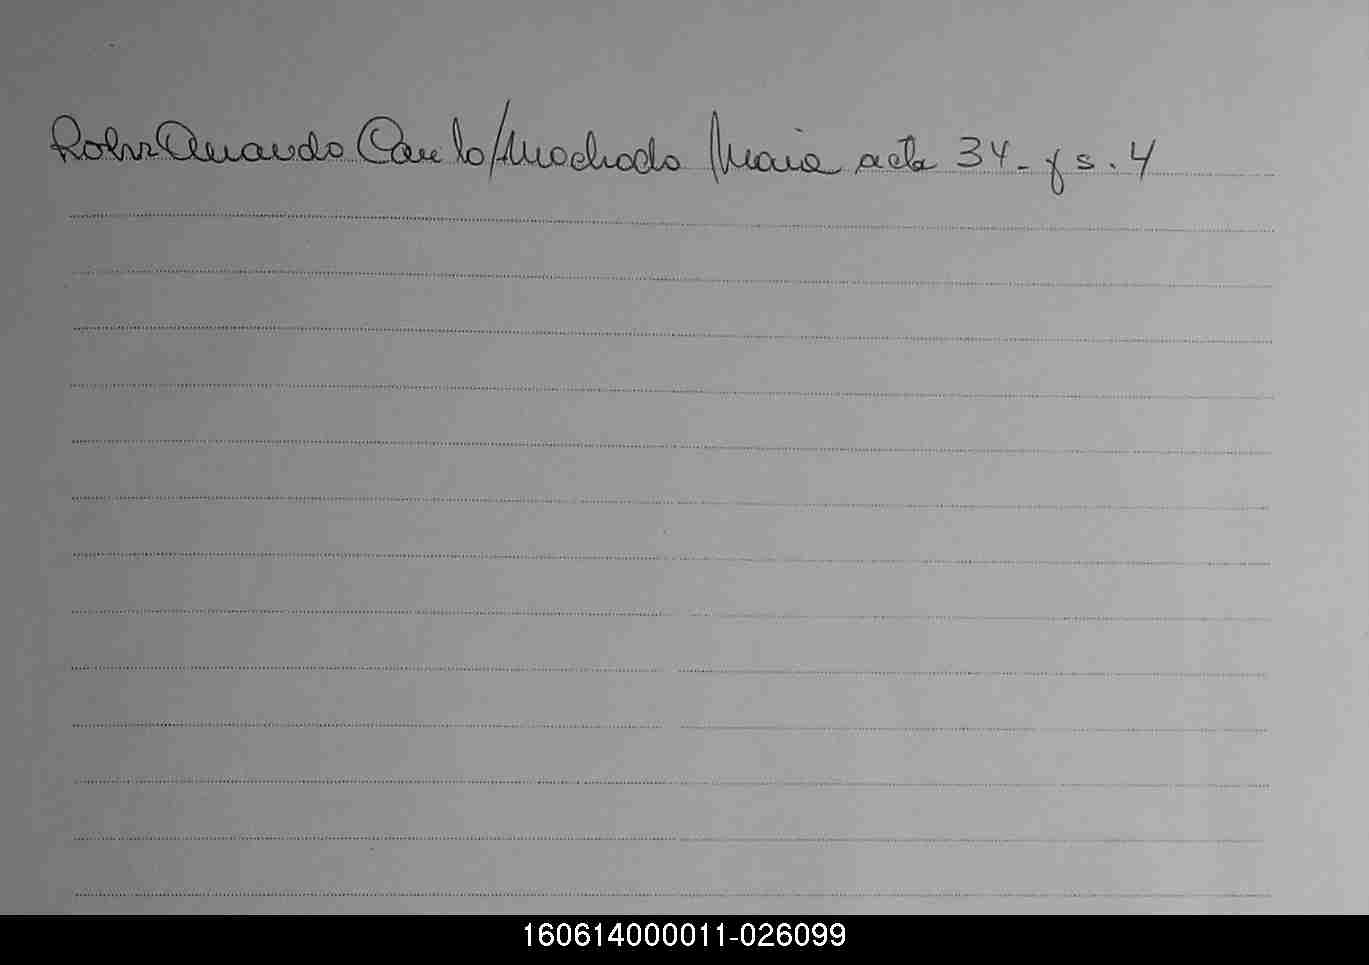 Rohr Amando Canto/Machado Maria acta 34-fs. 4
160614000011-026099